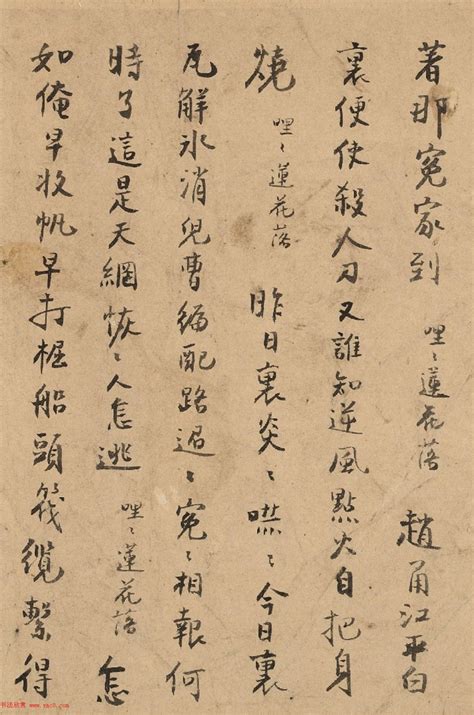 著那冤家到 哩〻蓮花落 趙甬江平白
裏便使殺人刀又誰知逆風點火自把身
燒 哩〻蓮花落 昨日裏炎〻 今日裏
瓦解冰消兒曹編配路迢〻冤〻相報何
時了這是天網恢〻人怎逃 哩〻蓮花落 怎
如俺早收帆早打橛船頭筏纜繫得
书法欣赏 www.yac8.com